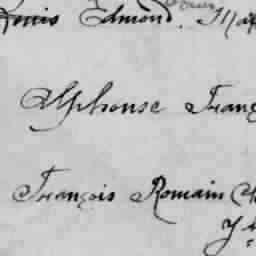 Louis Edmond.
Alphonse Franç
François Romain